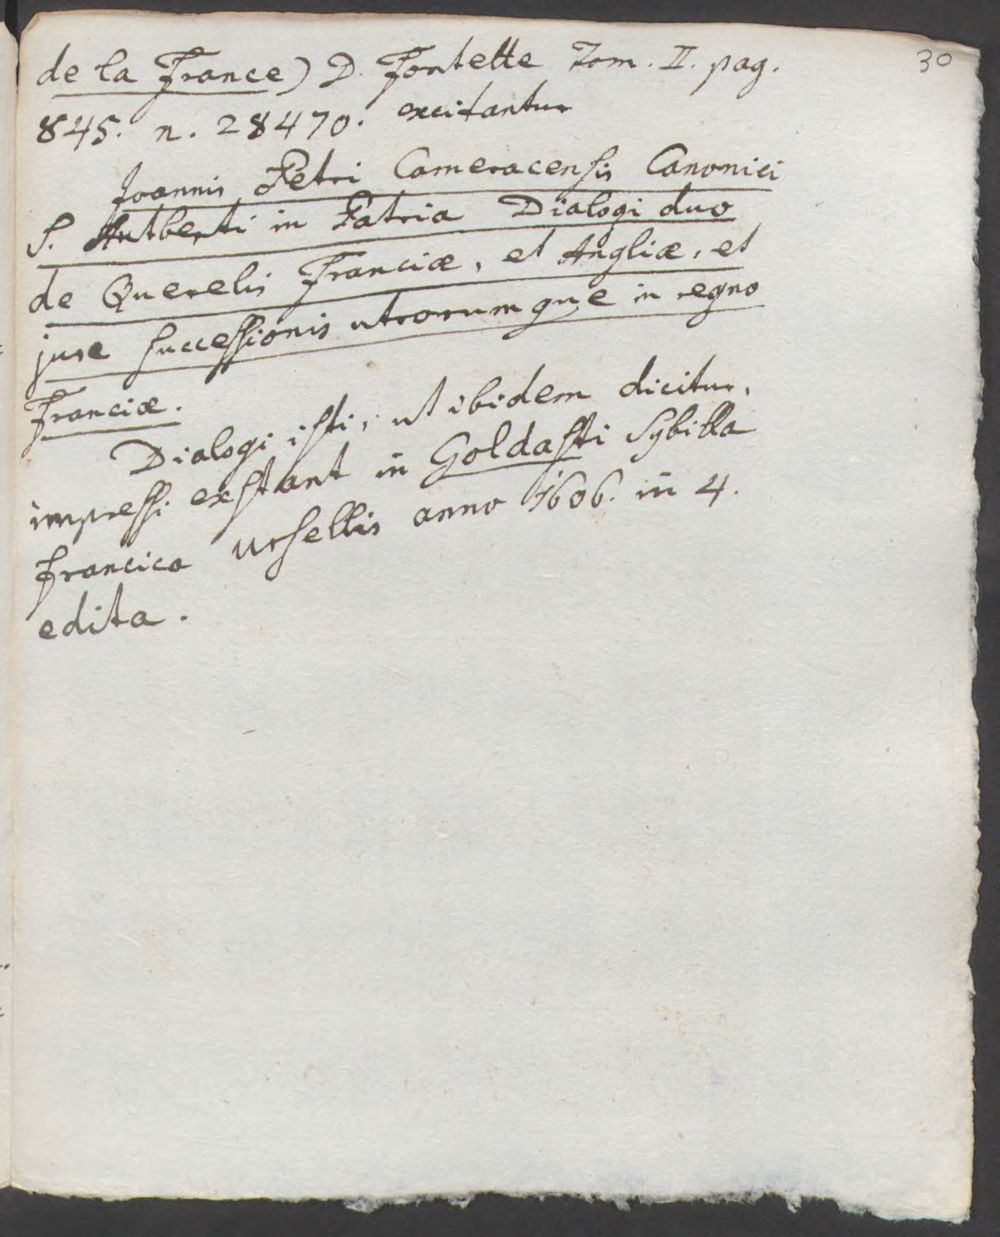 30
de la France) D. Fontette Tom. II. pag.
845. n. 28470. excitantur
Joannis Petri Cameracensis Canonici
S. Autberti in Patria Dialogi duo
de Querelis Franciæ, et Angliæ, et
jure successionis utrorumque in regno
Franciæ.
Dialogi isti, ut ibidem dicitur,
impressi exstant in Goldasti Sybilla
francica Ursellis anno 1606. in 4.
edita.